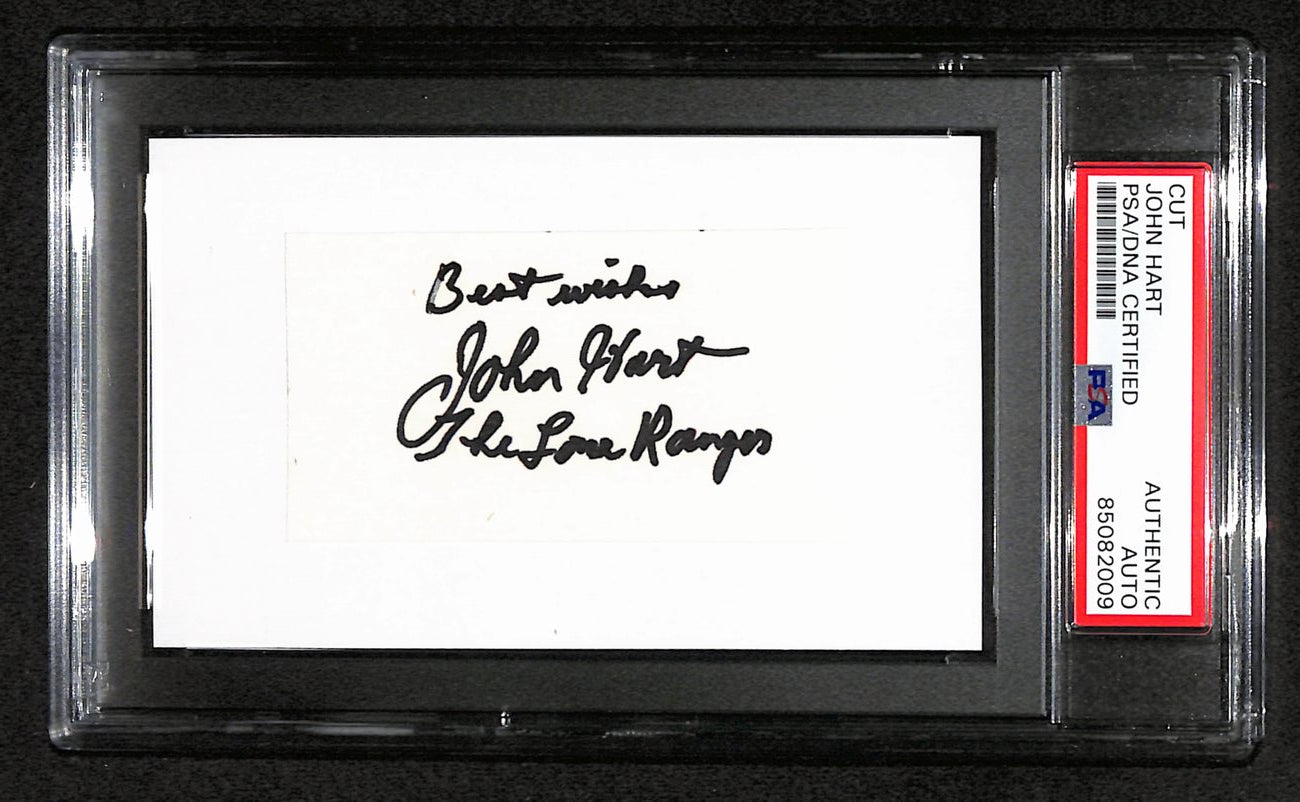 Best wishes
John Hart
The Lone Ranger
CUT
JOHN HART
PSA/DNA CERTIFIED
PSA
AUTHENTIC
AUTO
85082009